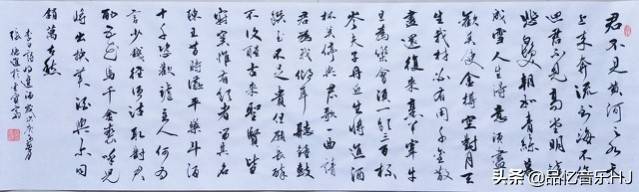 君不見黃河之水天
上來奔流到海不復
回君不見高堂明鏡
悲白髮朝如青絲暮
成雪人生得意須盡
歡莫使金樽空對月天
生我材必有用千金散
盡還復來烹羊宰牛
且為樂會須一飲三百杯
岑夫子丹丘生將進酒
杯莫停與君歌一曲請
君為我傾耳聽鐘鼓
饌玉不足貴但願長醉
不復醒古來聖賢皆
寂寞惟有飲者留其名
陳王昔時宴平樂斗酒
十千恣歡謔主人何為
言少錢徑須沽取對君
酌五花馬千金裘呼兒
將出換美酒與爾同
銷萬古愁
李白詩將進酒
头条 @品亿音乐HJ